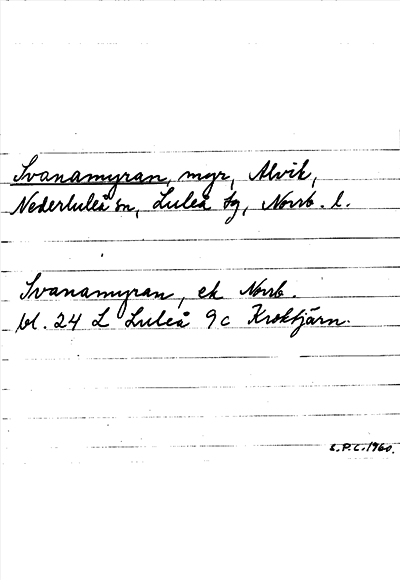 Svanamyran, myr, Alvik,
Nederluleå sn, Luleå tg, Norrb. l.
Svanamyran, ek Norrb.
bl. 24 L Luleå 9c Kroktjärn.
E.P.C. 1960.